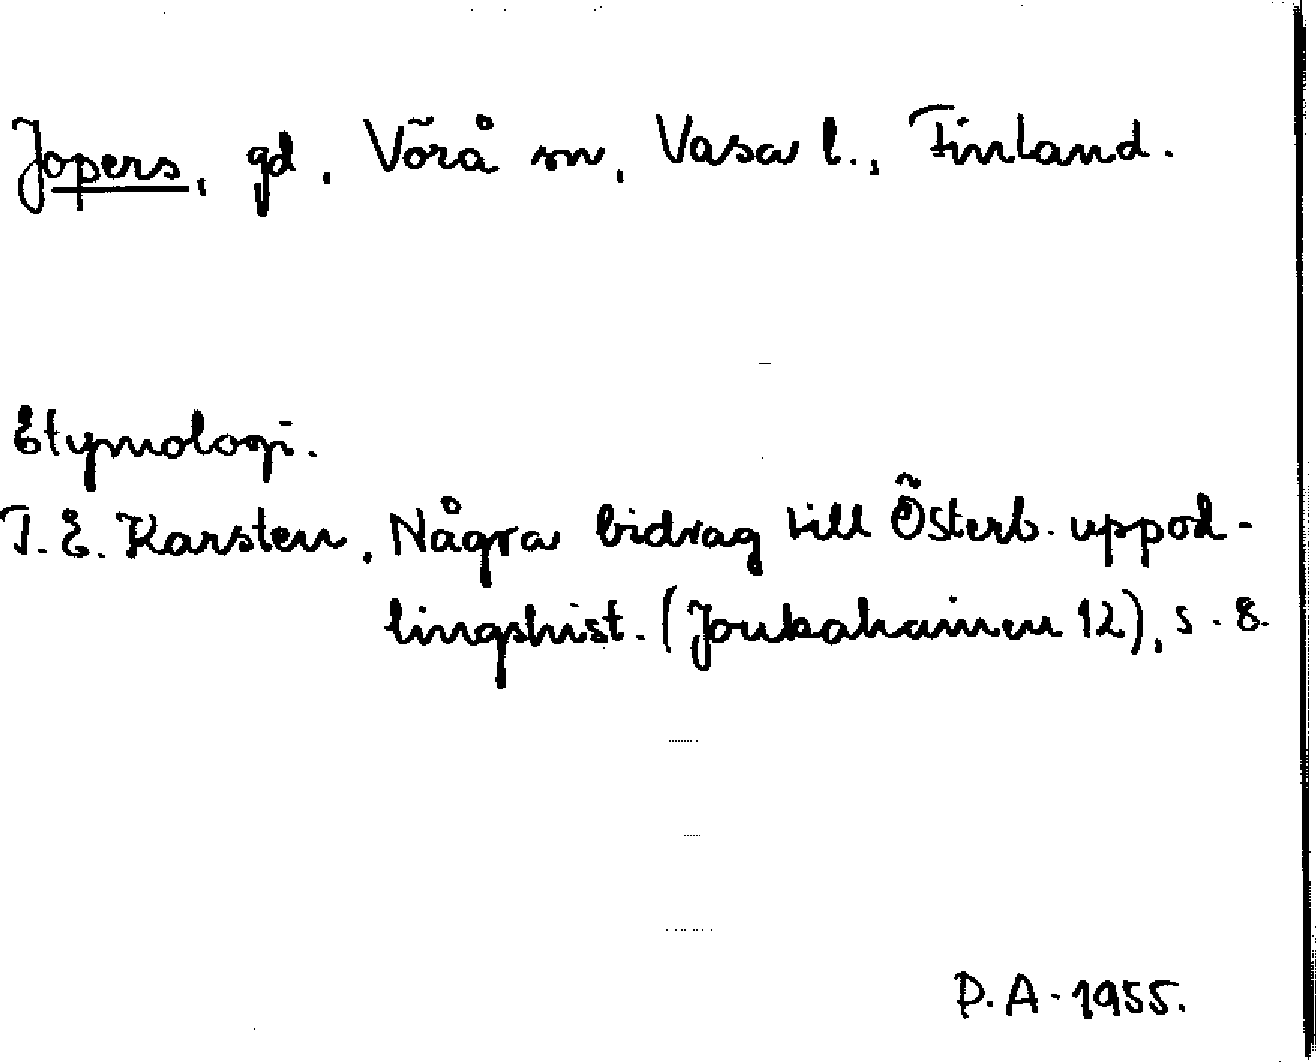 Jopers, gd, Vörå sn, Vasa l., Finland.
Etymologi.
T. E. Karsten, Några bidrag till Österb. uppod-
lingshist. (Joukahainen 12), s. 8.
P. A. 1955.